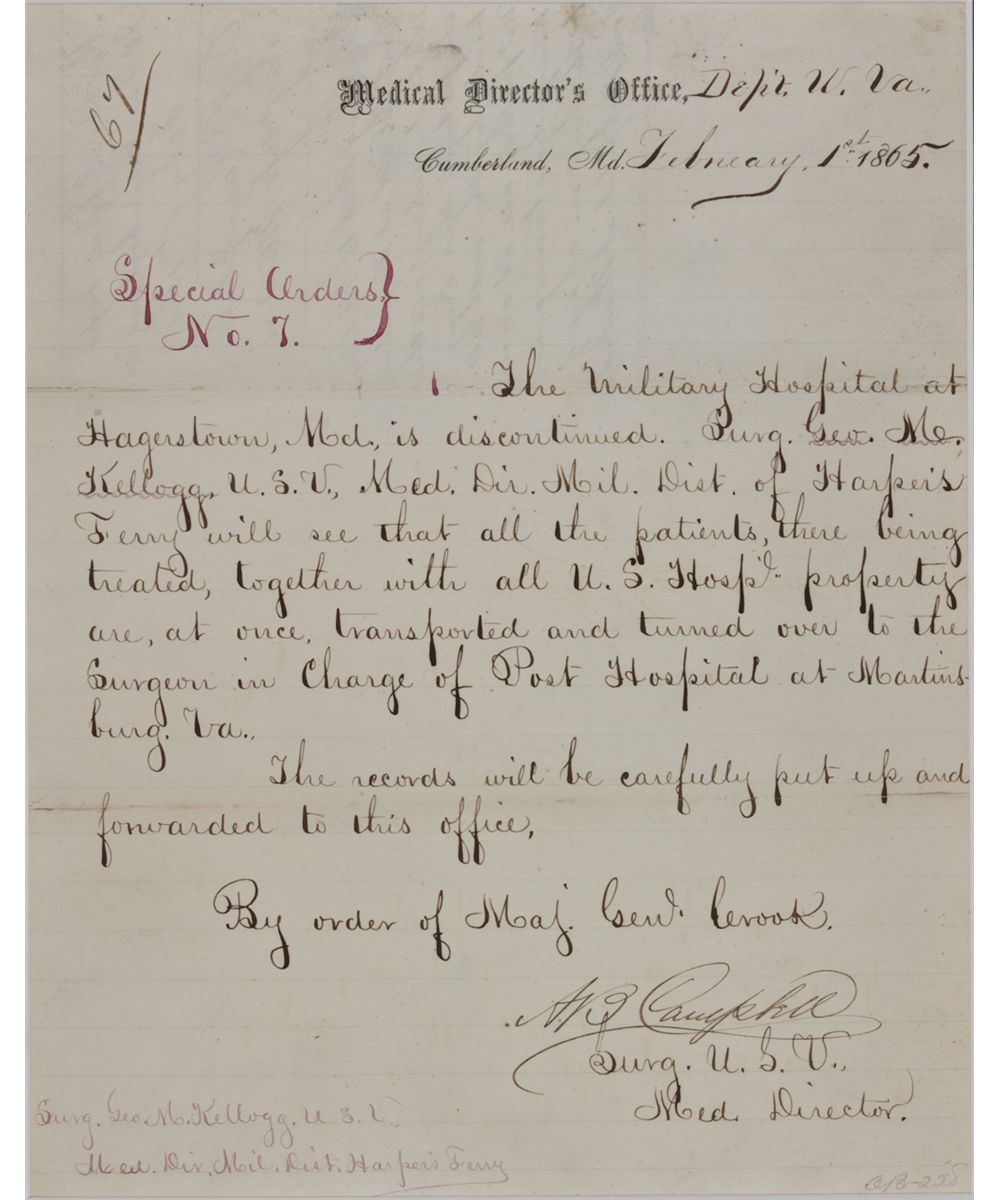 67
Medical Director's Office, Dep't. W. Va.,
Cumberland, Md. February, 1st 1865.
Special Orders,}
No. 7.
The Military Hospital at
Hagerstown, Md., is discontinued. Surg. Geo. M.
Kellogg, U. S. V., Med. Dir. Mil. Dist. of Harper's
Ferry will see that all the patients, there being
treated, together with all U. S. Hosp'l. property
are, at once, transported and turned over to the
Surgeon in Charge of Post Hospital at Martins-
burg. Va.,
The records will be carefully put up and
forwarded to this office,
By order of Maj. Genl. Crook.
A B Campbell
Surg. U. S. V.,
Med. Director.
Surg. Geo. M. Kellogg. U S V.
Med. Dir. Mil. Dist. Harper's Ferry